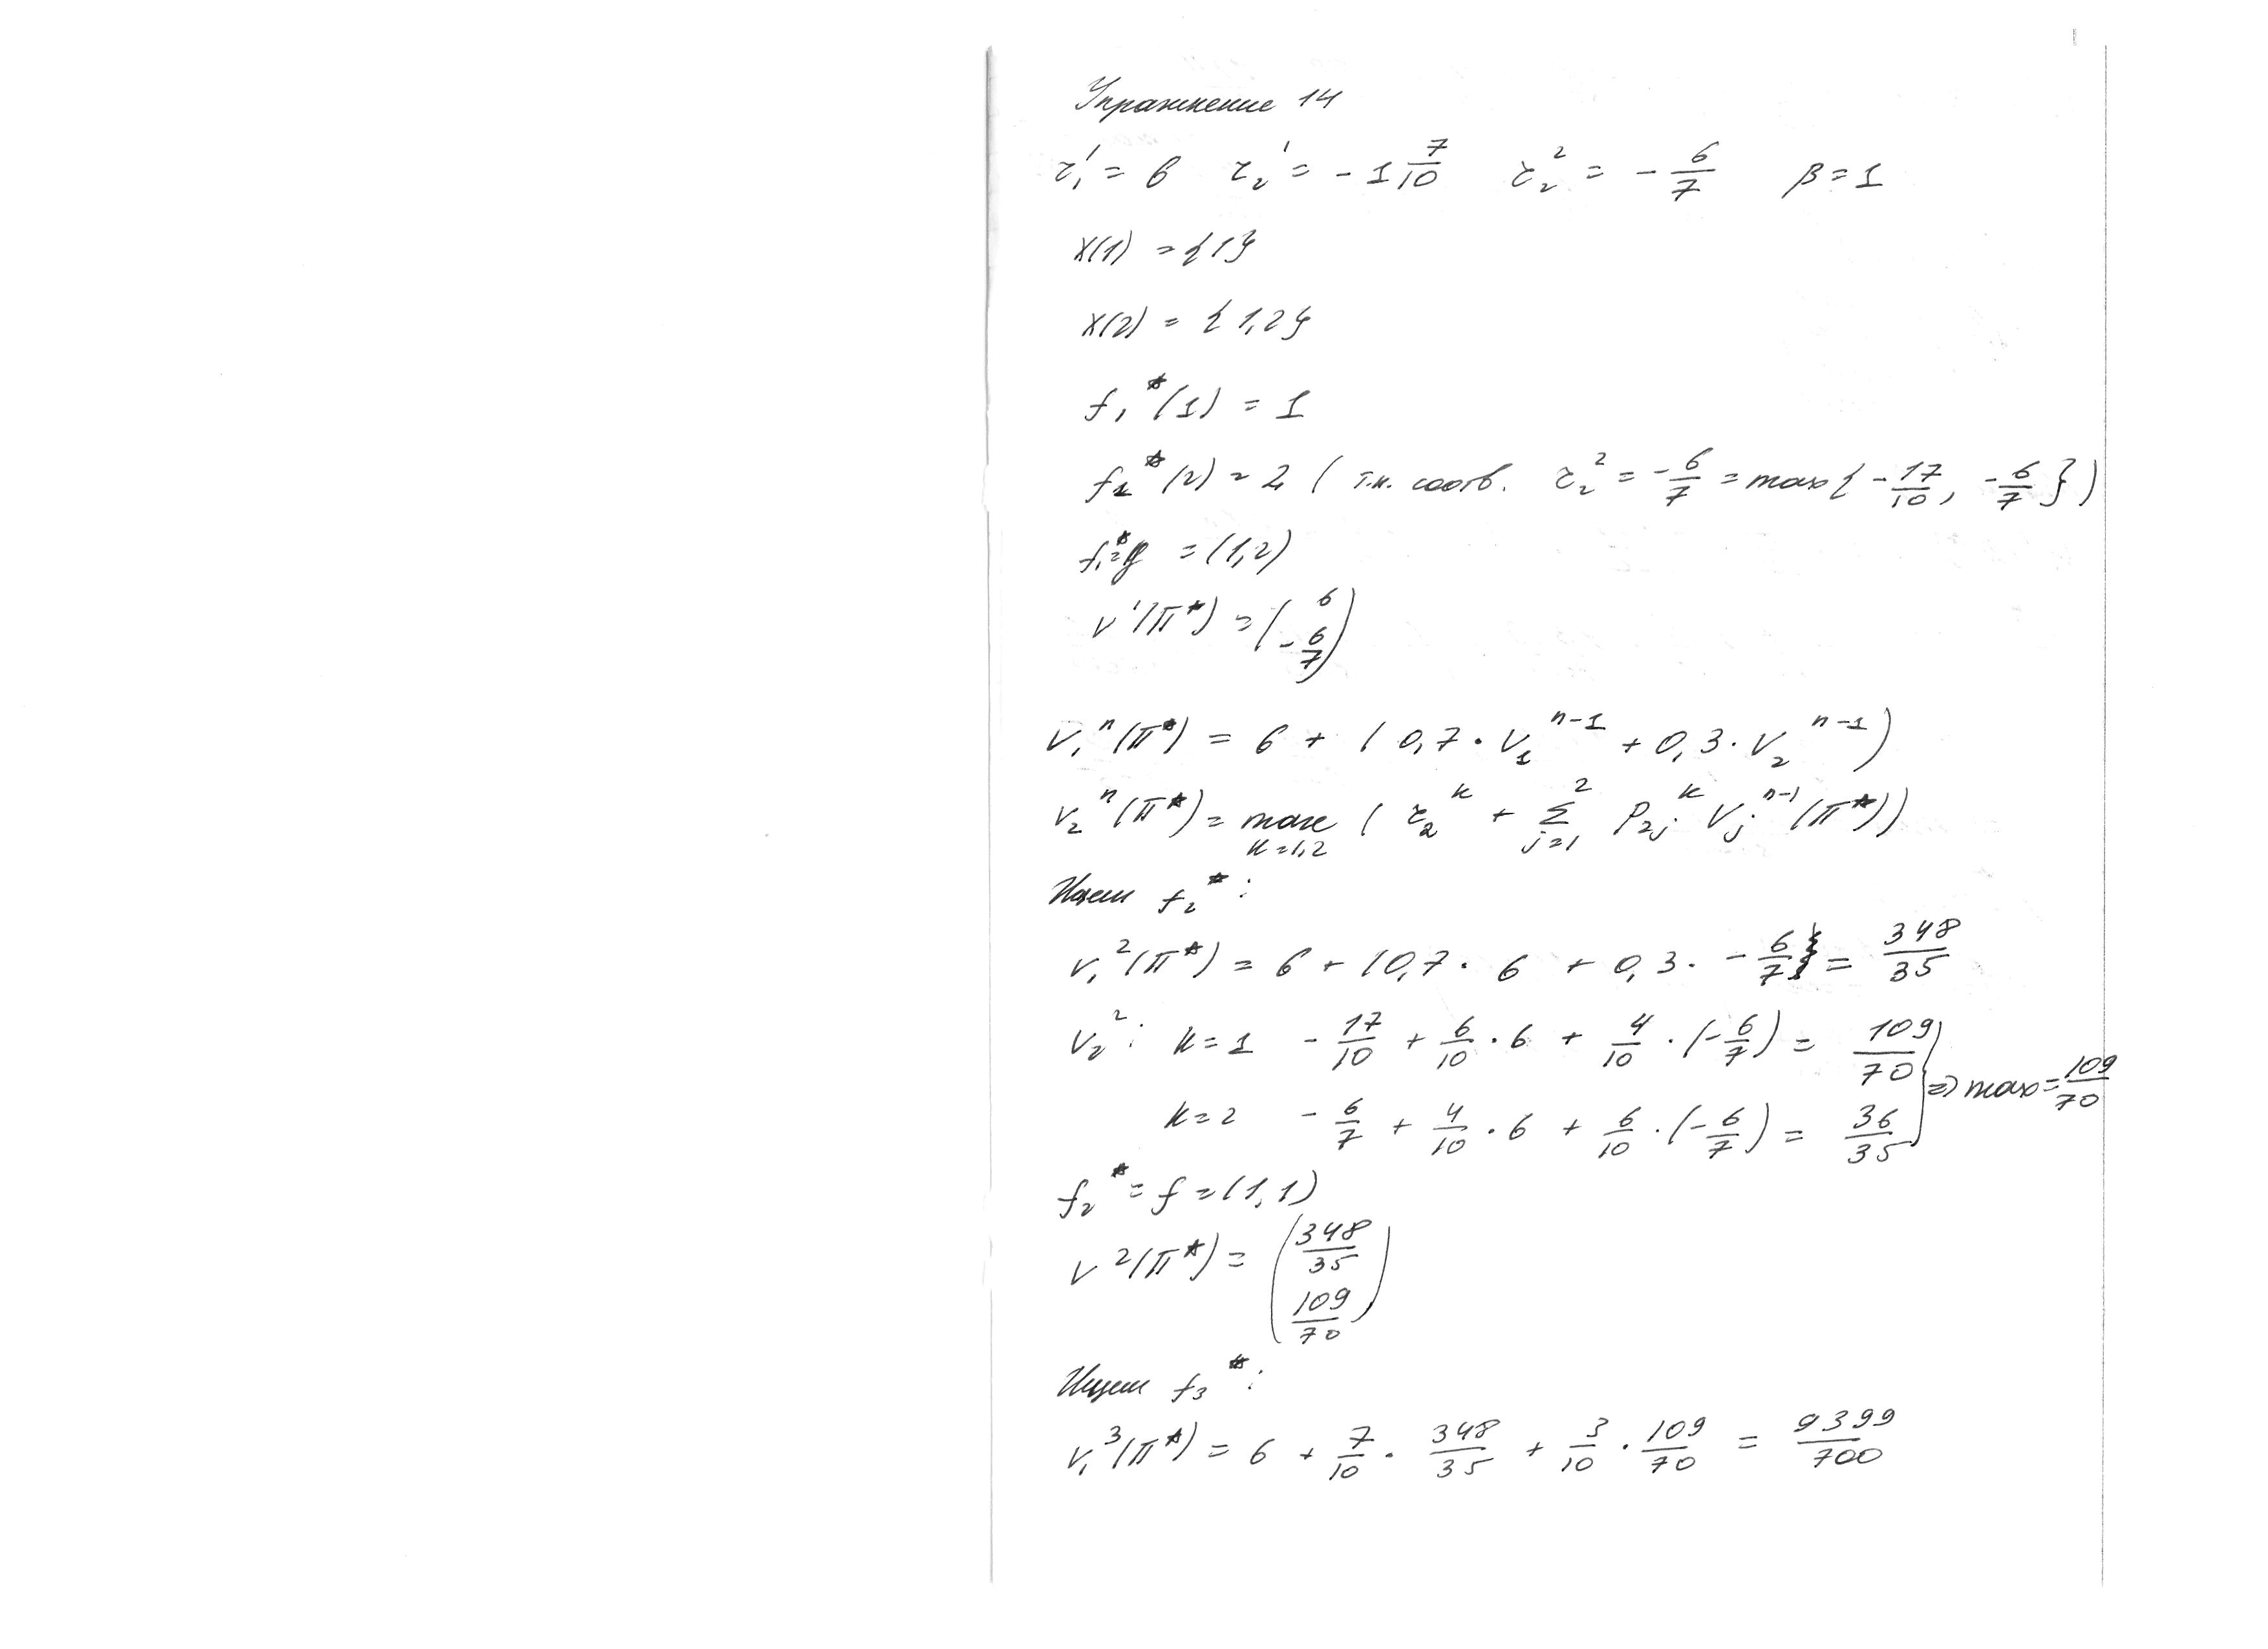 Упражнение 14
r₁¹ = 6   r₂¹ = -1 7/10   r₂² = - 6/7   β = 1
X(1) = {1}
X(2) = {1,2}
f₁*(1) = 1
f₁*(2) = 2 (т.к. соотв. r₂² = - 6/7 = max{- 17/10, - 6/7})
f₁* = f = (1,2)
V¹(π*) = (6; - 6/7)
V₁ⁿ(π*) = 6 + (0,7 · V₁ⁿ⁻¹ + 0,3 · V₂ⁿ⁻¹)
V₂ⁿ(π*) = max_{k=1,2} (r₂ᵏ + Σ_{j=1}^{2} P₂ⱼᵏ Vⱼⁿ⁻¹(π*))
Ищем f₂*:
V₁²(π*) = 6 + (0,7 · 6 + 0,3 · - 6/7} = 348/35
V₂²: k=1   - 17/10 + 6/10 · 6 + 4/10 · (- 6/7) = 109/70
k=2   - 6/7 + 4/10 · 6 + 6/10 · (- 6/7) = 36/35 } ⇒ max = 109/70
f₂* = f = (1,1)
V²(π*) = (348/35; 109/70)
Ищем f₃*:
V₁³(π*) = 6 + 7/10 · 348/35 + 3/10 · 109/70 = 9399/700